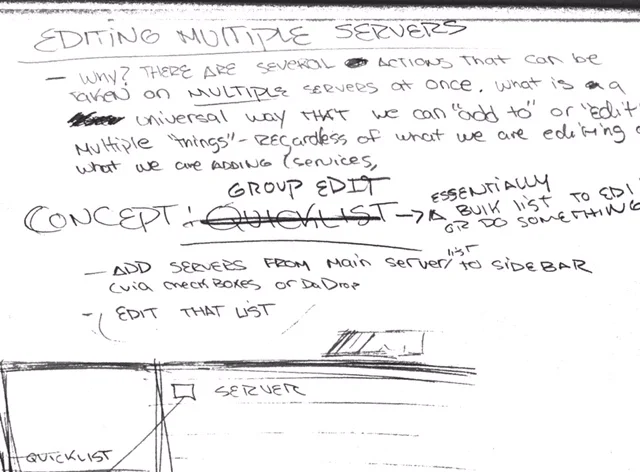 EDITING MULTIPLE SERVERS
- WHY? THERE ARE SEVERAL ACTIONS THAT can be
taken on MULTIPLE servers at once. What is a
universal way THAT we can "add to" or "Edit
Multiple "things" - REgardless of what we are editing
what we are ADDING (services,
GROUP EDIT
CONCEPT: QUICKLIST → A ESSENTIALLY
BULK list TO EDI
OR DO SOMETHING
- ADD SERVERS FROM Main server list to SIDEBAR
(via checkBoxes or DaDrop
- EDIT THAT LIST
SERVER
QUICKLIST